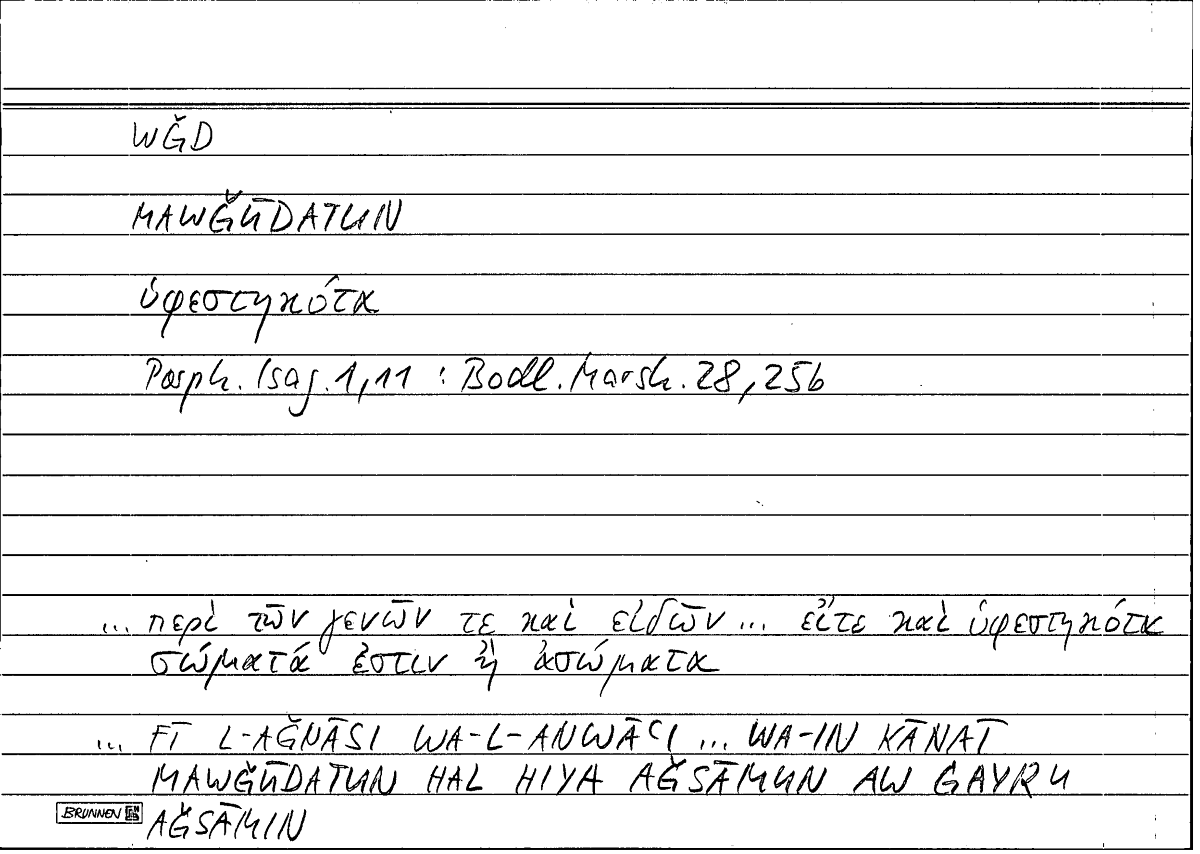 WǦD
MAWǦŪDATUN
ὑφεστηκότα
Porph. Isag. 1,11 : Bodl. Marsh. 28, 25b
... περὶ τῶν γενῶν τε καὶ εἰδῶν ... εἴτε καὶ ὑφεστηκότα
σώματά ἐστιν ἢ ἀσώματα
... FĪ L-AǦNĀSI WA-L-ANWĀʿI ... WA-IN KĀNAT
MAWǦŪDATUN HAL HIYA AǦSĀMUN AW ĠAYRU
AǦSĀMIN
BRUNNEN